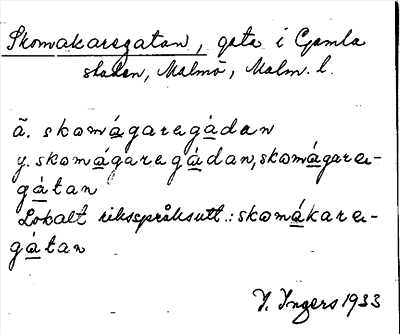 Skomakaregatan, gata i Gamla
staden, Malmö, Malm. l.
ä. skomágaregàdan
y. skomágaregàdan, skomágare-
gàtan
Lokalt riksspråksutt.: skomákare-
gàtan
I. Ingers 1933